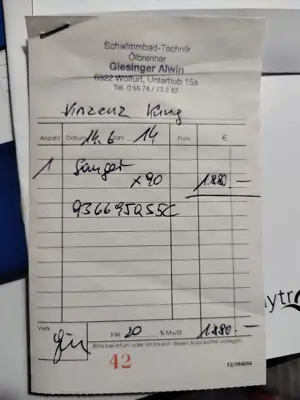 Schwimmbad-Technik
Ölbrenner
Giesinger Alwin
6922 Wolfurt, Unterhub 15a
Tel. 0 55 74 / 73 2 82
Vinzenz King
Anzahl Datum 14. 6 Jahr 14 Preis €
1 Sauger
x 90 1.880.—
Verk. inkl. 20 % MwSt. 1.880.—
Bitte bei Irrtum oder Umtausch diesen Kassazettel vorlegen.
42